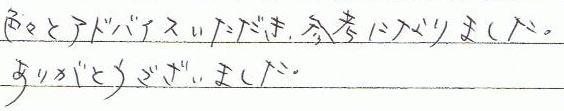 色々とアドバイスいただき、参考になりました。
ありがとうございました。